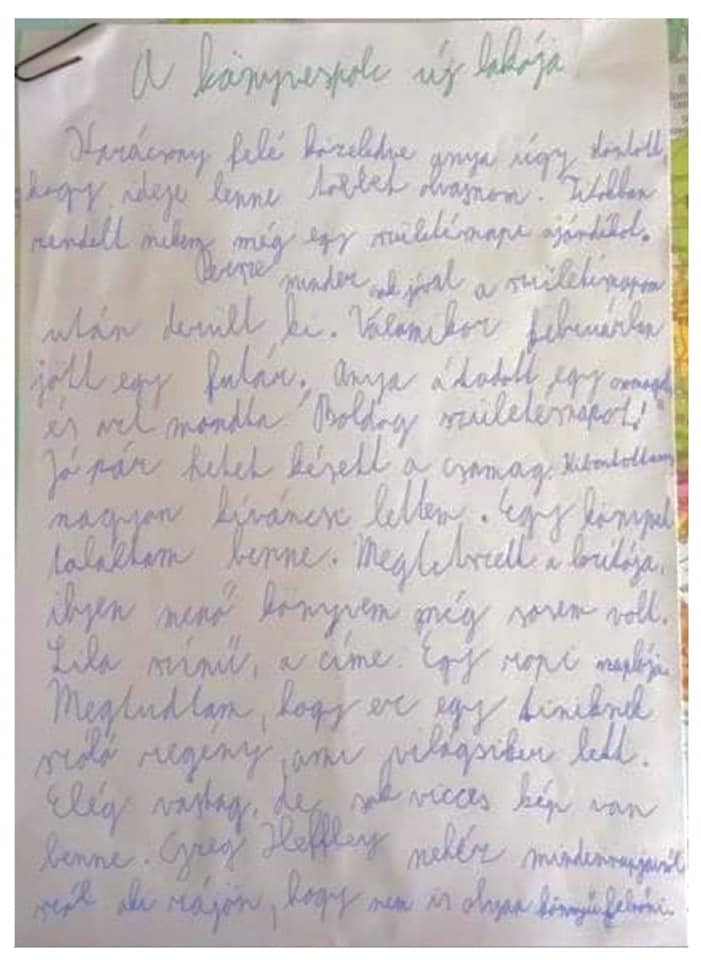 A könyvespolc új lakója
Karácsony felé közeledve anya úgy döntött,
hogy ideje lenne többet olvasnom. Titokban
rendelt nekem még egy születésnapi ajándékot.
Persze minden sok jóval a születésnapom
után derült ki. Valamikor februárban
jött egy futár. Anya átadott egy csomagot
és azt mondta "Boldog születésnapot!"
Jó pár hetet késett a csomag. Kibontottam,
nagyon kíváncsi lettem. Egy könyvet
találtam benne. Megtetszett a borítója,
ilyen menő könyvem még sosem volt.
Lila színű, a címe: Egy ropi naplója.
Megtudtam, hogy ez egy tiniknek
szóló regény, ami világsiker lett.
Elég vastag, de sok vicces kép van
benne. Greg Heffley nehéz mindennapjairól
szól aki rájön, hogy nem is olyan könnyű felnőni.